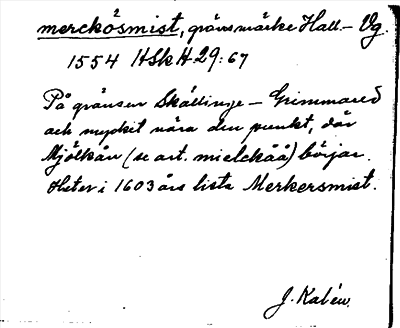 merckösmist, gränsmärke Hall. – Vg.
1554 HSkH 29:67
På gränsen Skällinge – Grimmared
och mycket nära den punkt, där
Mjölkån (se art. mielckåå) börjar.
Heter i 1603 års lista Merkersmist.
J. Kalén.